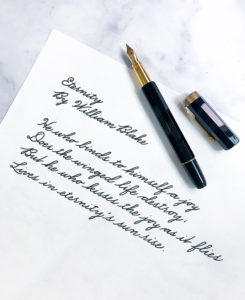 Eternity
By William Blake
He who binds to himself a joy
Does the winged life destroy;
But he who kisses the joy as it flies
Lives in eternity's sun rise.